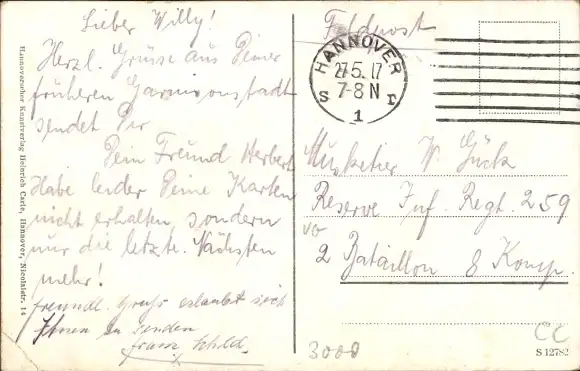 Lieber Willy!
Herzl. Grüsse aus Deiner
früheren Garnisonstadt
sendet Dir
Dein Freund Herbert
Habe leider Deine Karten
nicht erhalten sondern
nur die letzte. Nächsten
mehr!
freundl. Gruß erlaubt sich
Ihnen zu senden
Franz
Hannoverscher Kunstverlag Heinrich Carle, Hannover, Nicolaistr. 14
Feldpost
HANNOVER
27.5.17
7-8 N
S 1
Musketier W. Gück
Reserve Inf. Regt. 259
2 Bataillon 8 Komp.
3000
CC
S 12782